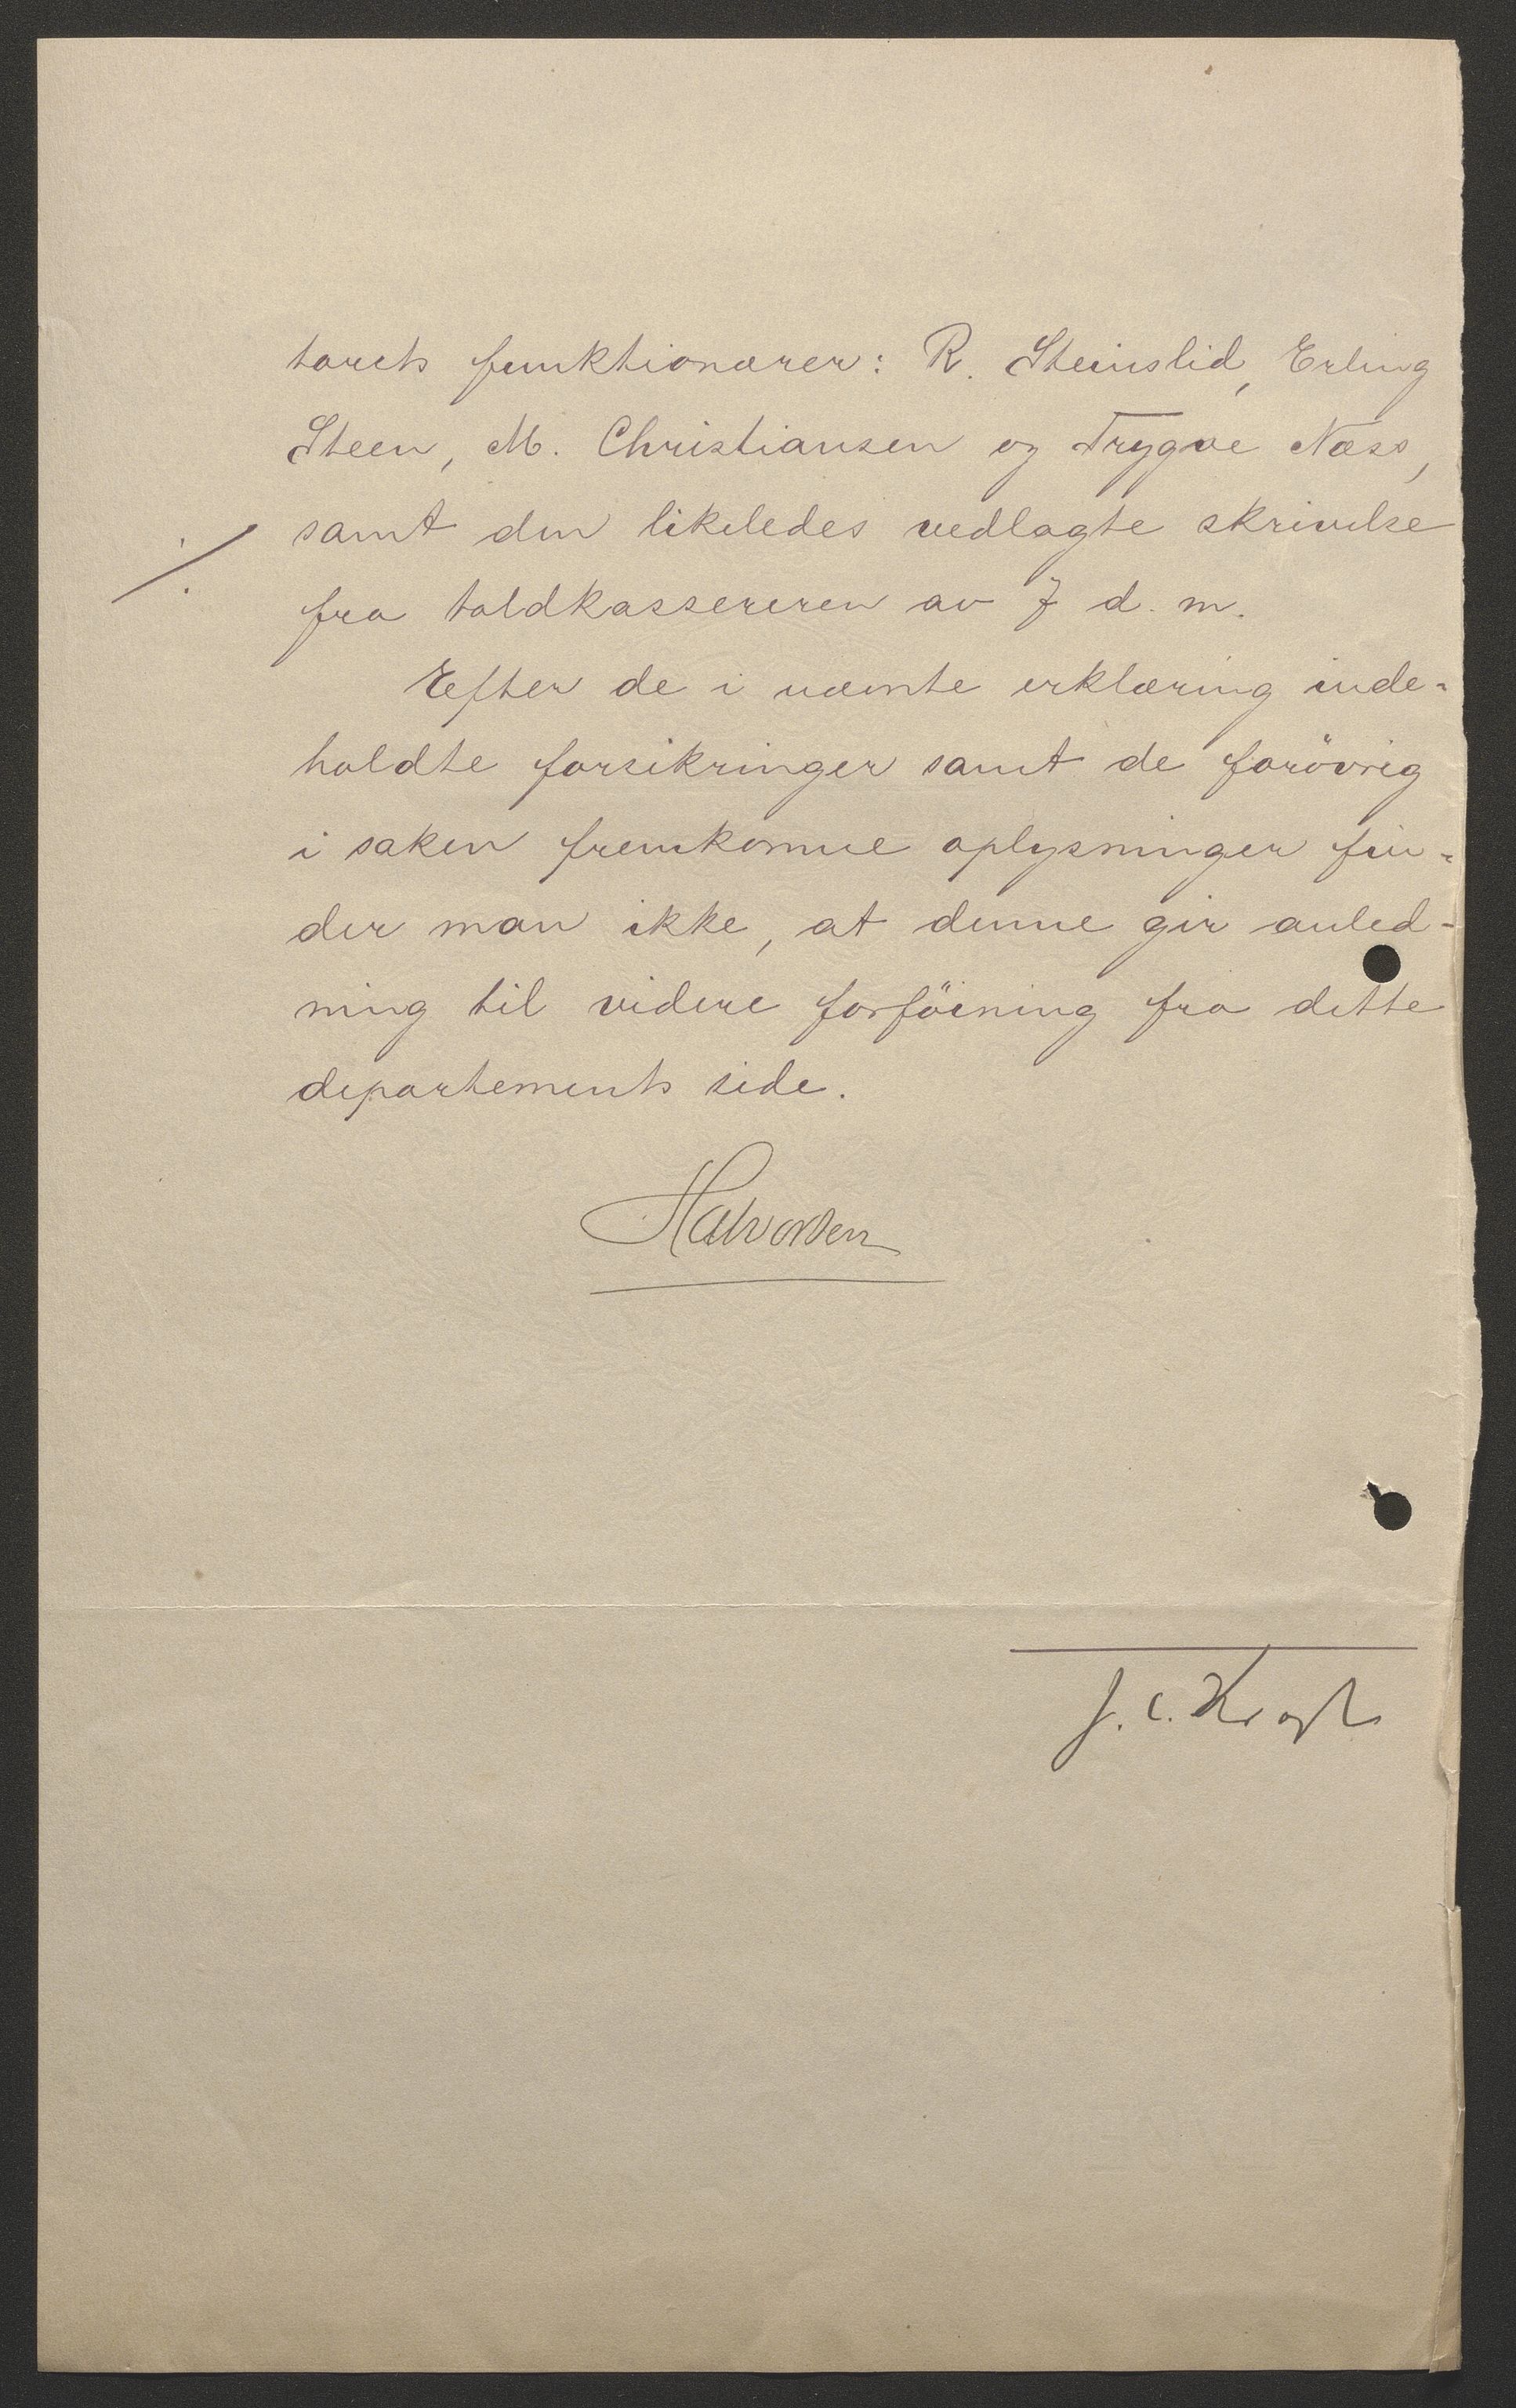 torets funktionærer: R. Steinslid, Erling
Steen, M. Christiansen og Trygve Næss,
./. samt den likeledes vedlagte skrivelse
fra toldkassereren av 7 d. m.
Efter de i nævnte erklæring inde-
holdte forsikringer samt de forövrig
i saken fremkomne oplysninger fin-
der man ikke, at denne gir anled-
ning til videre forföining fra dette
departements side.
Halvorsen
J. C.